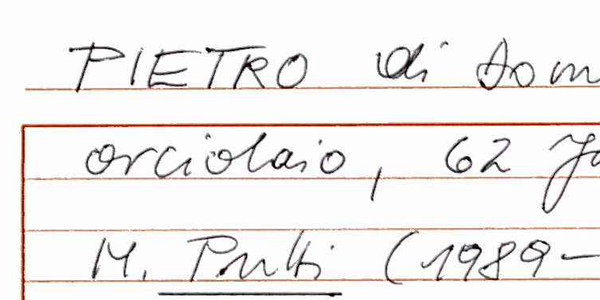 PIETRO di Dom
orciolaio, 62 Ja
M. Pulti (1989-